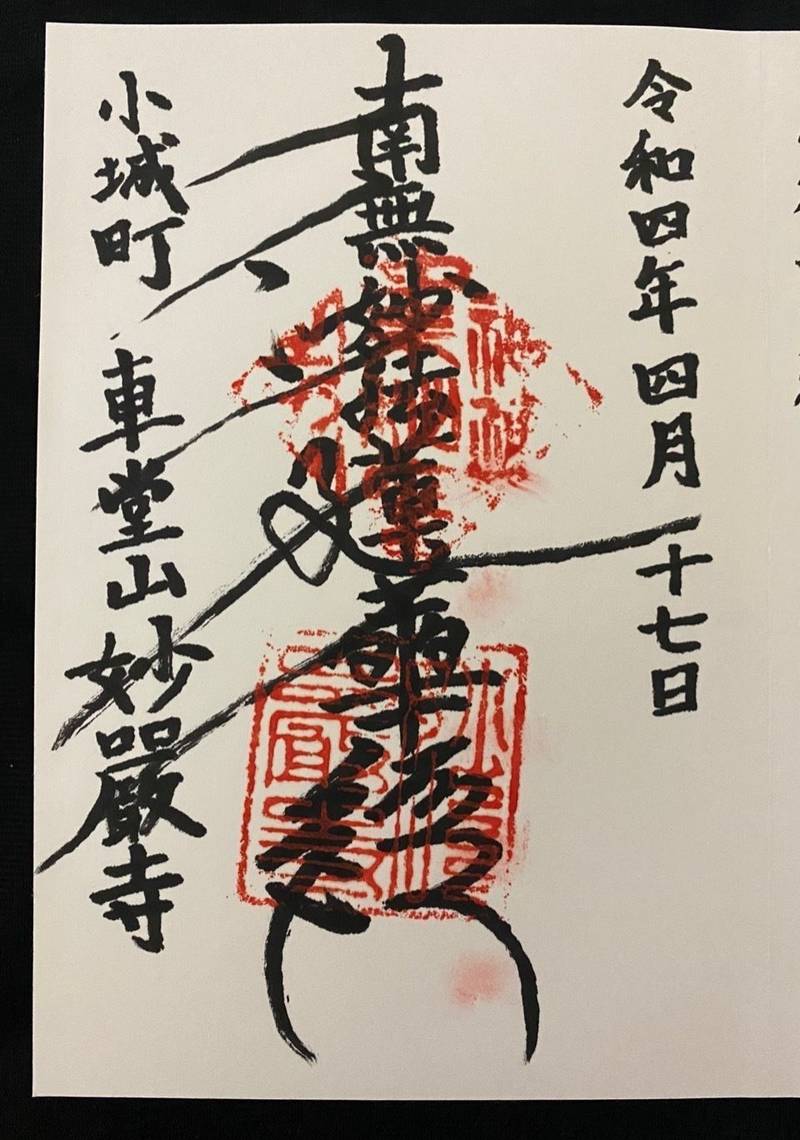 令和四年四月十七日
南無妙法蓮華経
小城町 車堂山妙嚴寺